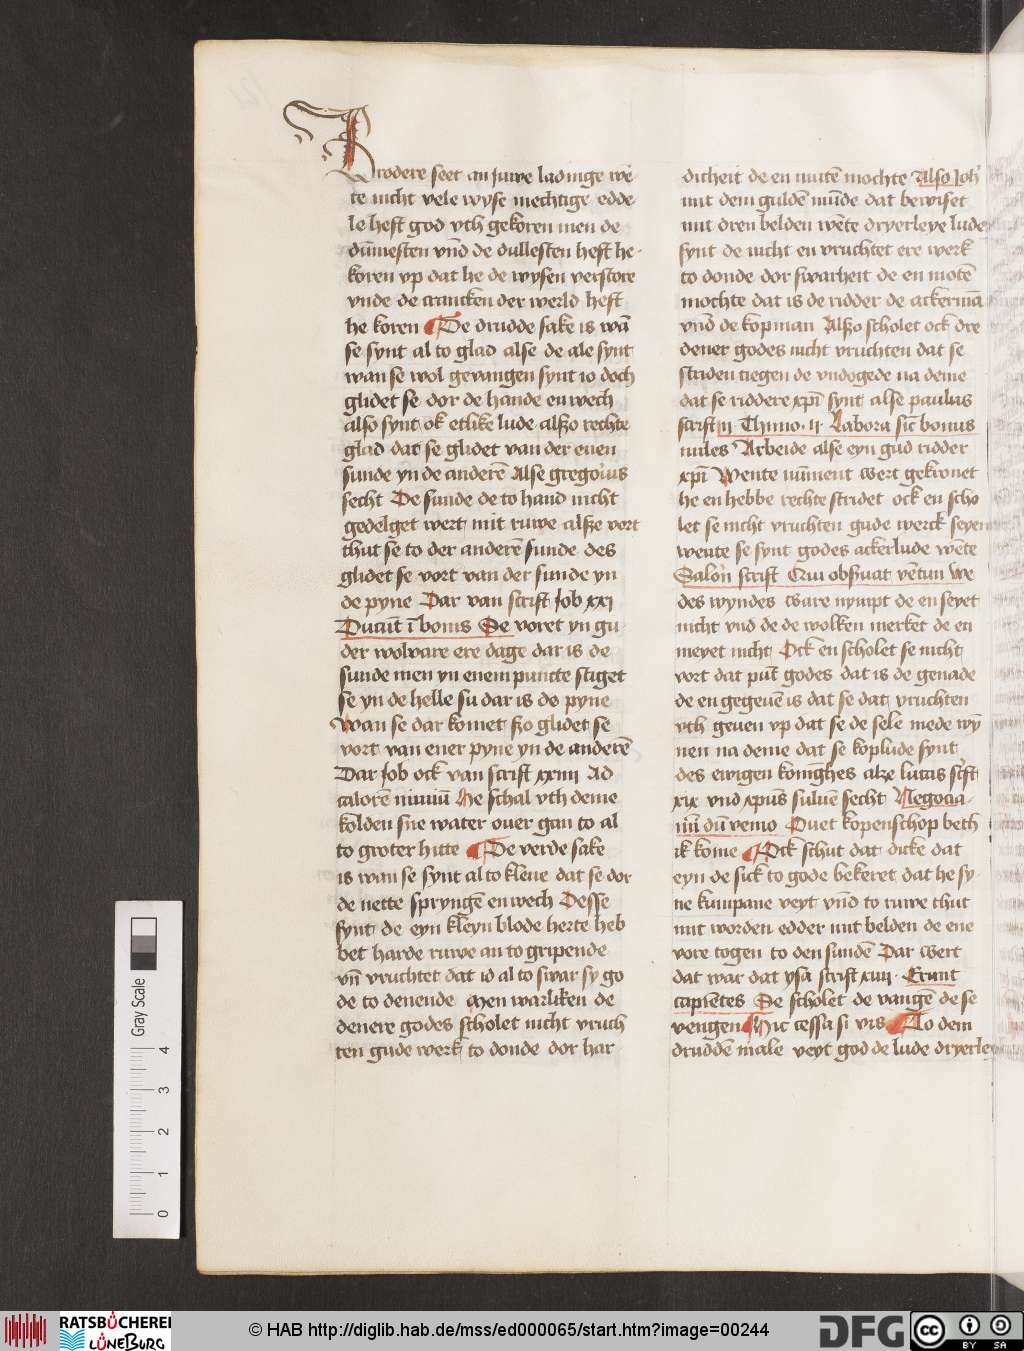 Brodere seet an juwe ladinge wē
te nicht vele wyse mechtige edde
le heft god vth gekoren men de
dūmesten vnd de dullesten heft he
koren vp dat he de wysen verstore
vnde de crancken der werld heft
he koren De drudde sake is wā
se synt al to glad alse de ale synt
wan se wol gevangen synt io doch
glidet se dor de hande en wech
also synt ok etlike lude alßo rechte
glad dat se glidet van der enen
sunde yn de anderē Alse gregorius
secht De sunde de to hand nicht
gedelget wert mit ruwe alße vort
thut se to der anderē sunde des
glidet se vort van der sunde yn
de pyne Dar van scrift Job xxi
Ducūt ī bonis De voret yn gu
der wolvare ere dage dar is de
sunde men yn enem puncte stiget
se yn de helle su dar is de pyne
wan se dar komet ßo glidet se
vort van ener pyne yn de anderē
Dar Job ock van scrift xxiiii Ad
calorē nimiū He schal vth deme
kolden sne water ouer gan to al
to groter hitte De verde sake
is wan se synt al to klene dat se dor
de nette spryngē en wech Desse
synt de eyn kleyn blode herte heb
bet harde ruwe an to gripende
vn̄ vruchtet dat id al to swar sy go
de to denende Men warliken de
denere godes scholet nicht vruch
ten gude werk to donde dor har
dicheit de en mitē mochte Also Joh
mit dem guldē mūde dat bewiset
mit dren belden wēte dryerleye lude
synt de nicht en vruchtet ere werk
to donde dor swarheit de en motē
mochte dat is de ridder de ackermā
vnd de kopman Alßo scholet ock dre
dener godes nicht vruchten dat se
striden tiegen de vndogede na deme
dat se riddere xpī synt alse paulus
scrift ii Thimo ii Labora sic bonus
miles Arbeide alse eyn gud ridder
xpī Wente nūment wert gekronet
he en hebbe rechte stridet ock en scho
let se nicht vruchten gude werck seyen
wente se synt godes ackerlude wēte
Salon scrift Qui obseruat vētum we
des wyndes ware nympt de en seyet
nicht vnd de de wolken merket de en
meyet nicht Ock en scholet se nicht
vort dat pūt godes dat is de genade
de en gegeuē is dat se dat vruchten
vth geuen vp dat se de sele mede wȳ
nen na deme dat se koplude synt
des ewigen konīghes alze lucas scrift
xix vnd xpus suluē secht Negocia
mī dū venio Duet kopenschop beth
ik kome Ock schut dat dicke dat
eyn de sick to gode bekeret dat he sy
ne kumpane veyt vnd to ruwe thut
mit worden edder mit belden de ene
vore togen to den sundē Dar wert
dat war dat ysa scrift xiiii Erunt
capientes De scholet de vangē de se
vengen Hic cessa si vis To dem
druddē male veyt god de lude dryerley
Gray Scale
4
3
2
1
0
RATSBÜCHEREI
LÜNEBURG
© HAB http://diglib.hab.de/mss/ed000065/start.htm?image=00244
DFG
cc
BY SA